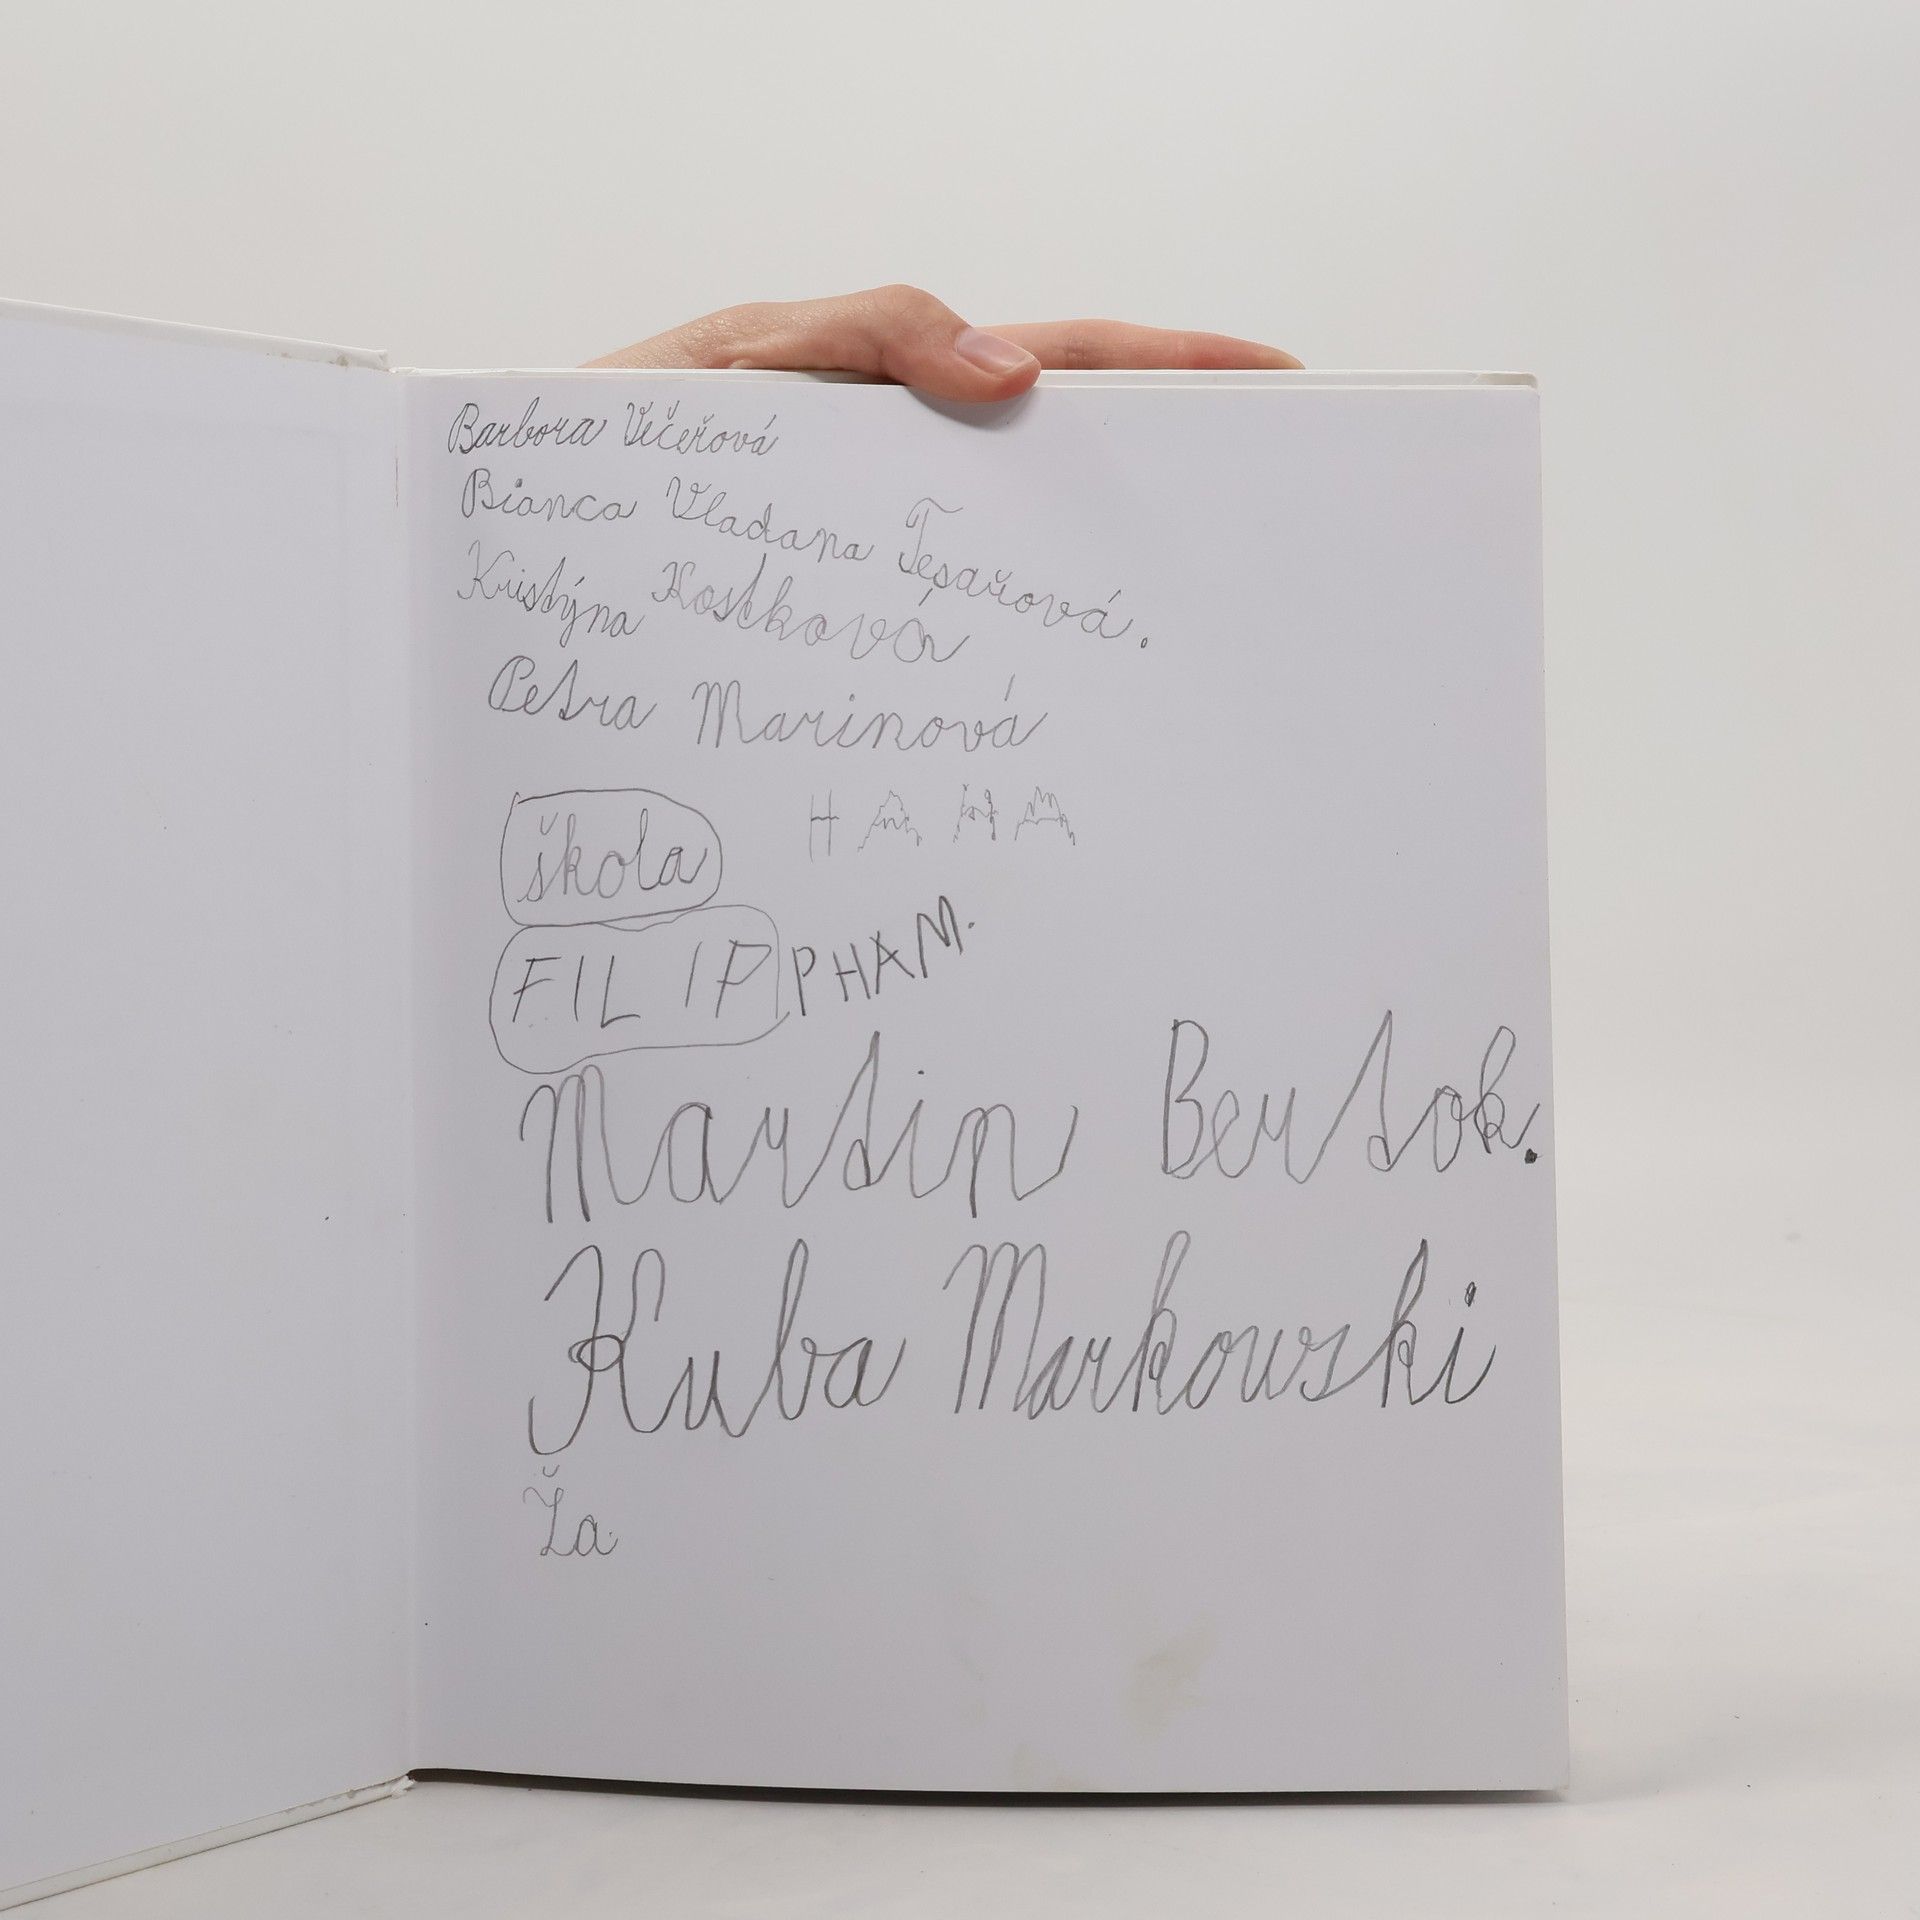 Barbora Večeřová
Bianca Vladana Tesařová.
Kristýna Kostková
Petra Marinová
škola
FILIP PHAM.
Martin Bertok.
Kuba Markowski
Ža